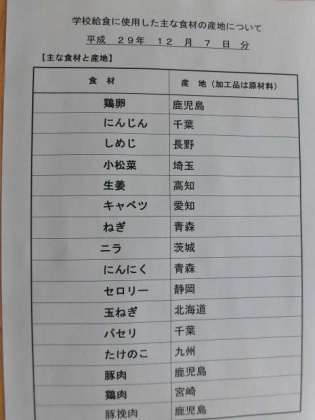 学校給食に使用した主な食材の産地について
平成 29年 12月 7日 分
【主な食材と産地】
食材 産地(加工品は原材料)
鶏卵 鹿児島
にんじん 千葉
しめじ 長野
小松菜 埼玉
生姜 高知
キャベツ 愛知
ねぎ 青森
ニラ 茨城
にんにく 青森
セロリー 静岡
玉ねぎ 北海道
パセリ 千葉
たけのこ 九州
豚肉 鹿児島
鶏肉 宮崎
豚挽肉 鹿児島